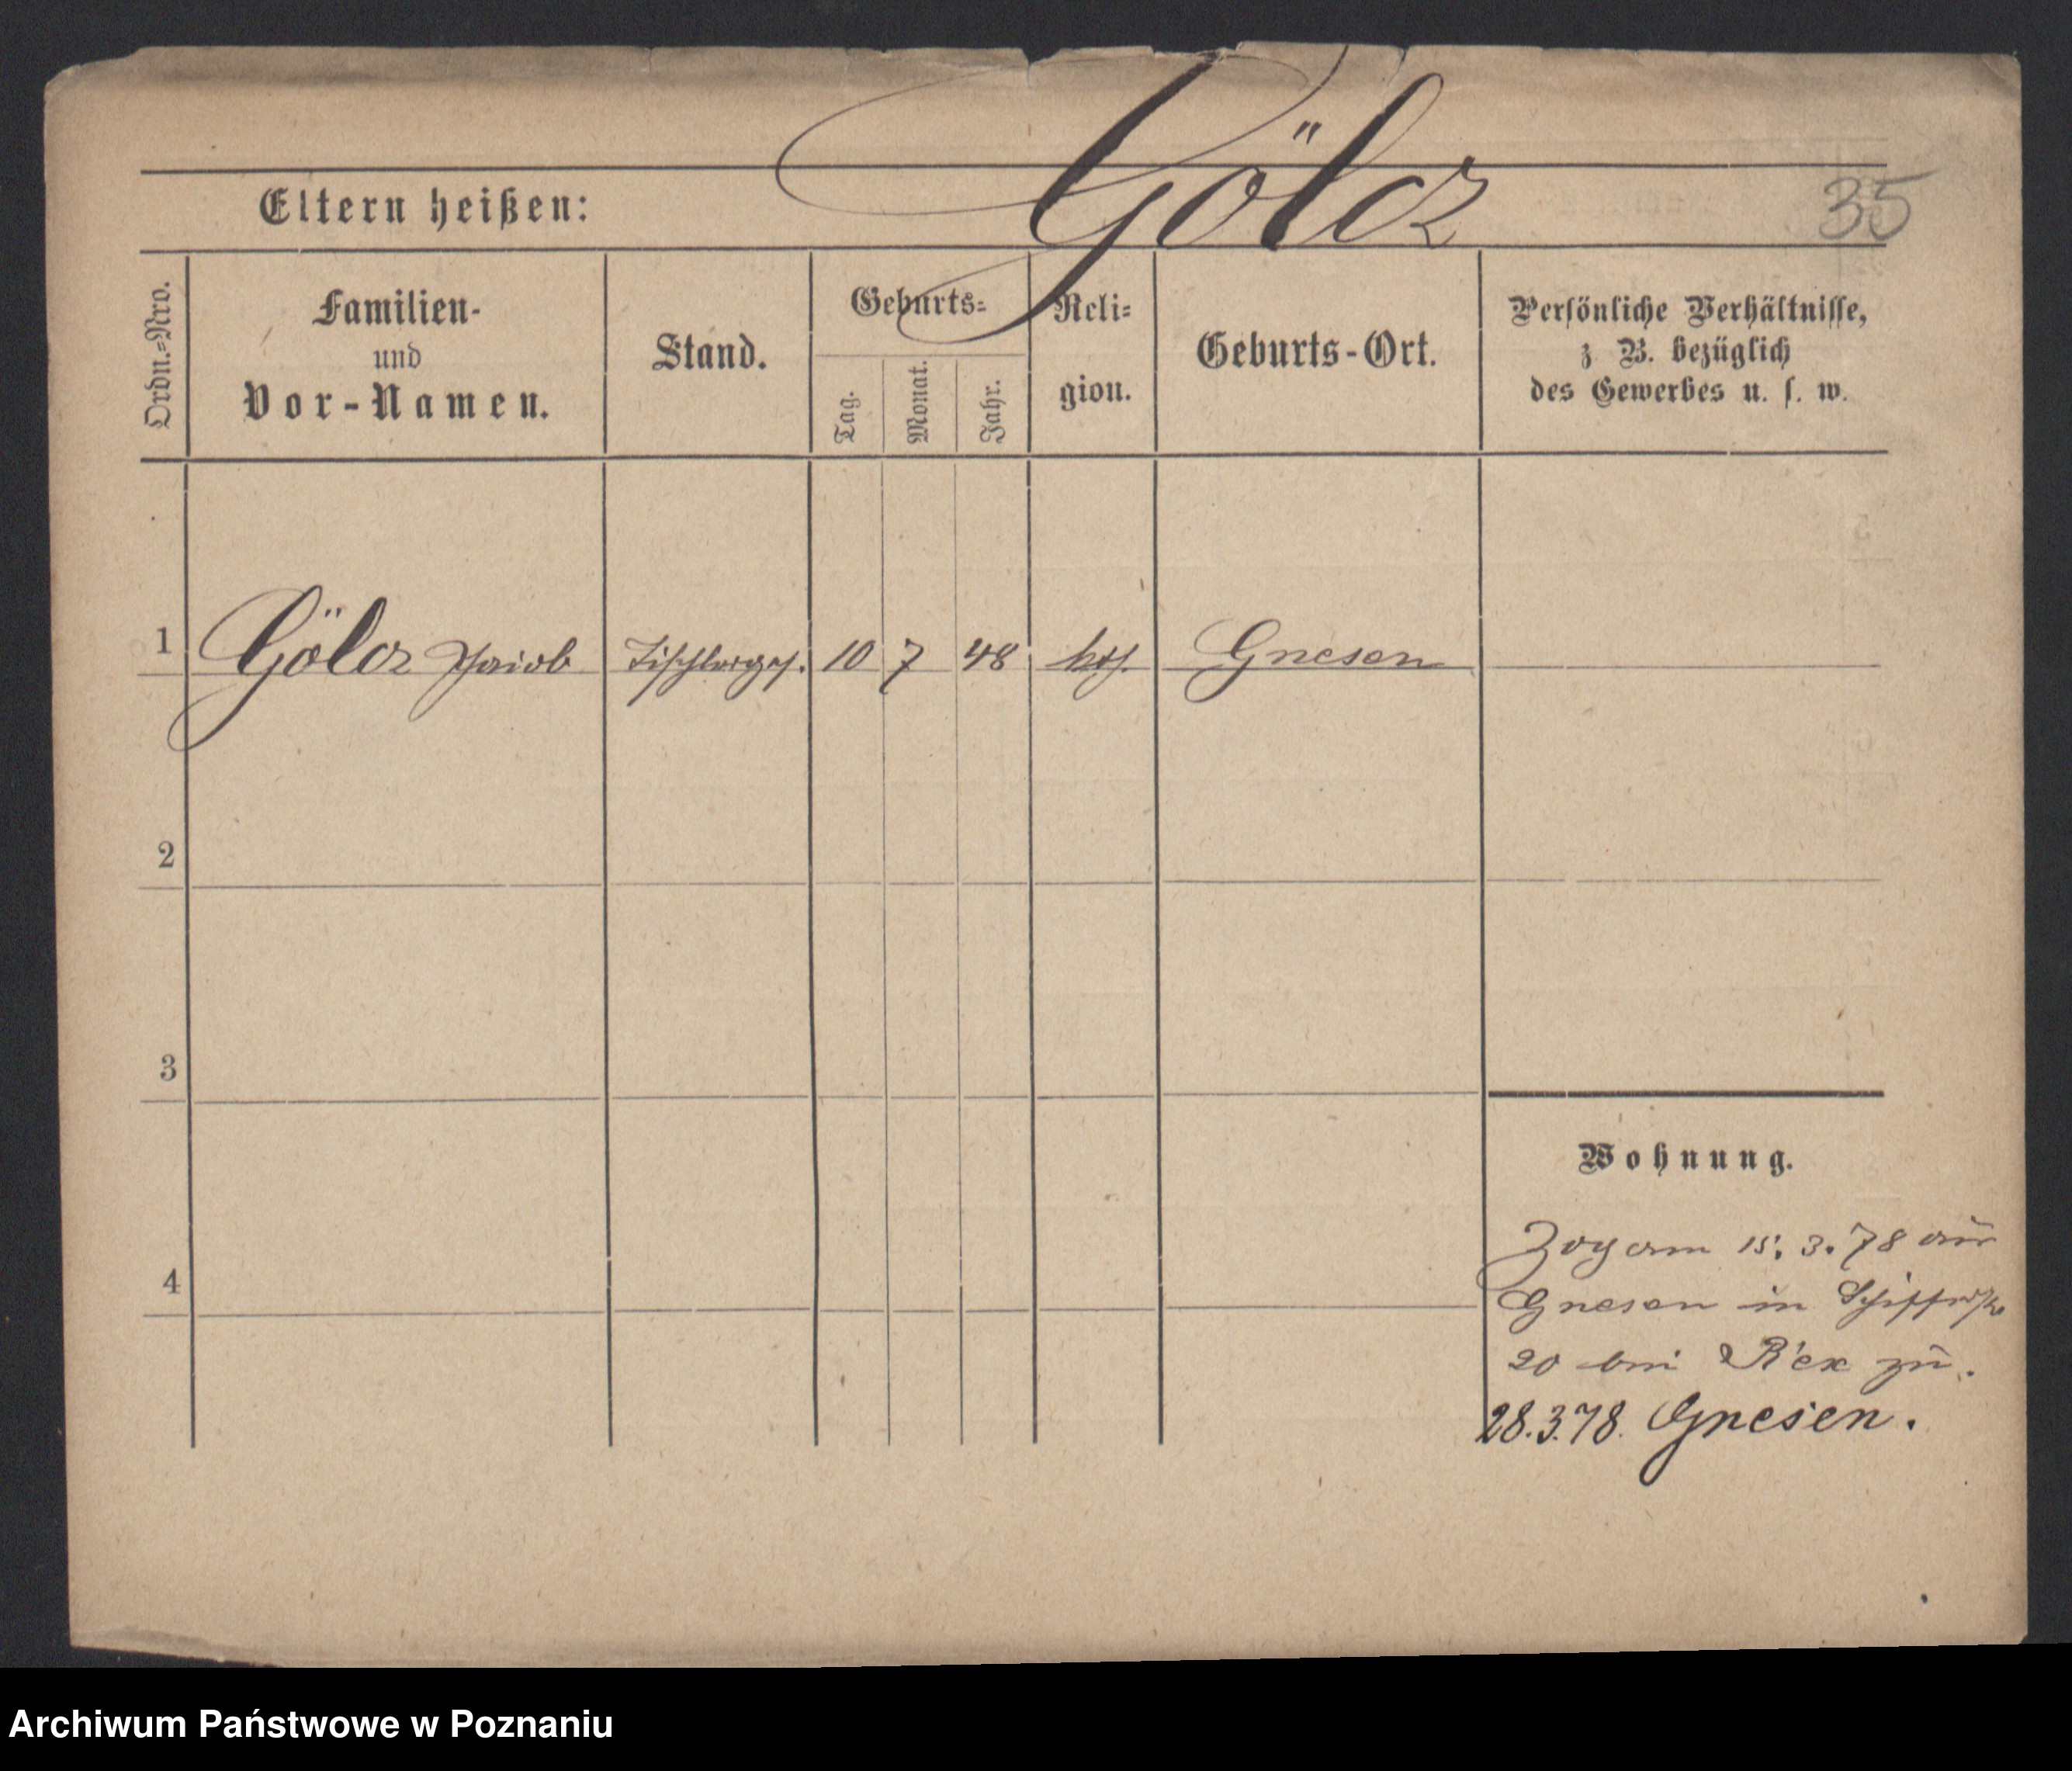 Gölcz
35
Eltern heißen:
Ordn.=Nro.
Familien-
und
Vor-Namen.
Stand.
Geburts=
Tag.
Monat.
Jahr.
Reli=
gion.
Geburts-Ort.
Persönliche Verhältnisse,
z B. bezüglich
des Gewerbes u. s. w.
1 Gölcz Jakob Tischlerges. 10 7 48 kth. Gnesen
2
3
4
Wohnung.
Zog am 15. 3. 78 aus
Gnesen in Schifferstr
20 bei Rex zu.
28.3.78. Gnesen.
Archiwum Państwowe w Poznaniu